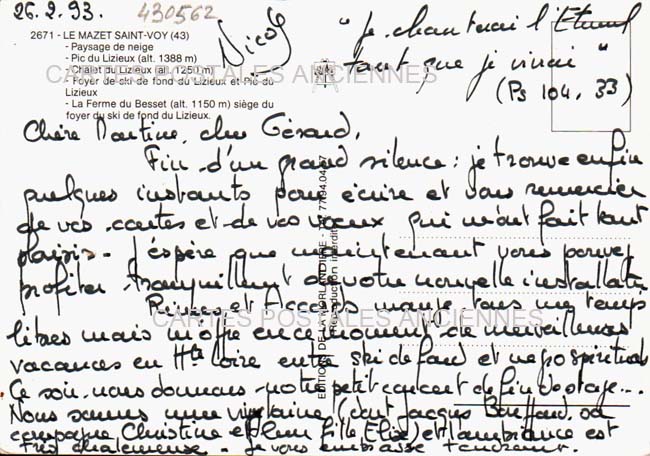 26.2.93.
430562
2671 - LE MAZET SAINT-VOY (43)
- Paysage de neige
- Pic du Lizieux (alt. 1388 m)
- Chalet du Lizieux (alt. 1250 m)
- Foyer de ski de fond du Lizieux et Pic du
Lizieux
- La Ferme du Besset (alt. 1150 m) siège du
foyer du ski de fond du Lizieux.
Nicole
" Je chanterai l'Eternel
tant que je vivrai "
(Ps 104, 33)
CARTES POSTALES ANCIENNES
Chère Martine, cher Gérard,
Fin d'un grand silence : je trouve enfin
quelques instants pour écrire et vous remercier
de vos cartes et de vos voeux qui m'ont fait tant
plaisir. J'espère que maintenant vous pouvez
profiter tranquillement de votre nouvelle installation.
et Accords mange tous mes temps
libres mais m'offre en ce moment de merveilleuses
vacances en Hte Loire entre ski de fond et négo spirituals
CARTES POSTALES ANCIENNES
Ce soir, nous donnons notre petit concert de fin de stage...
Nous sommes une vingtaine (dont Jacques sa
compagne Christine et leur fille Elise) et l'ambiance est
très chaleureuse. Je vous embrasse tendrement.
Reproduction interdite